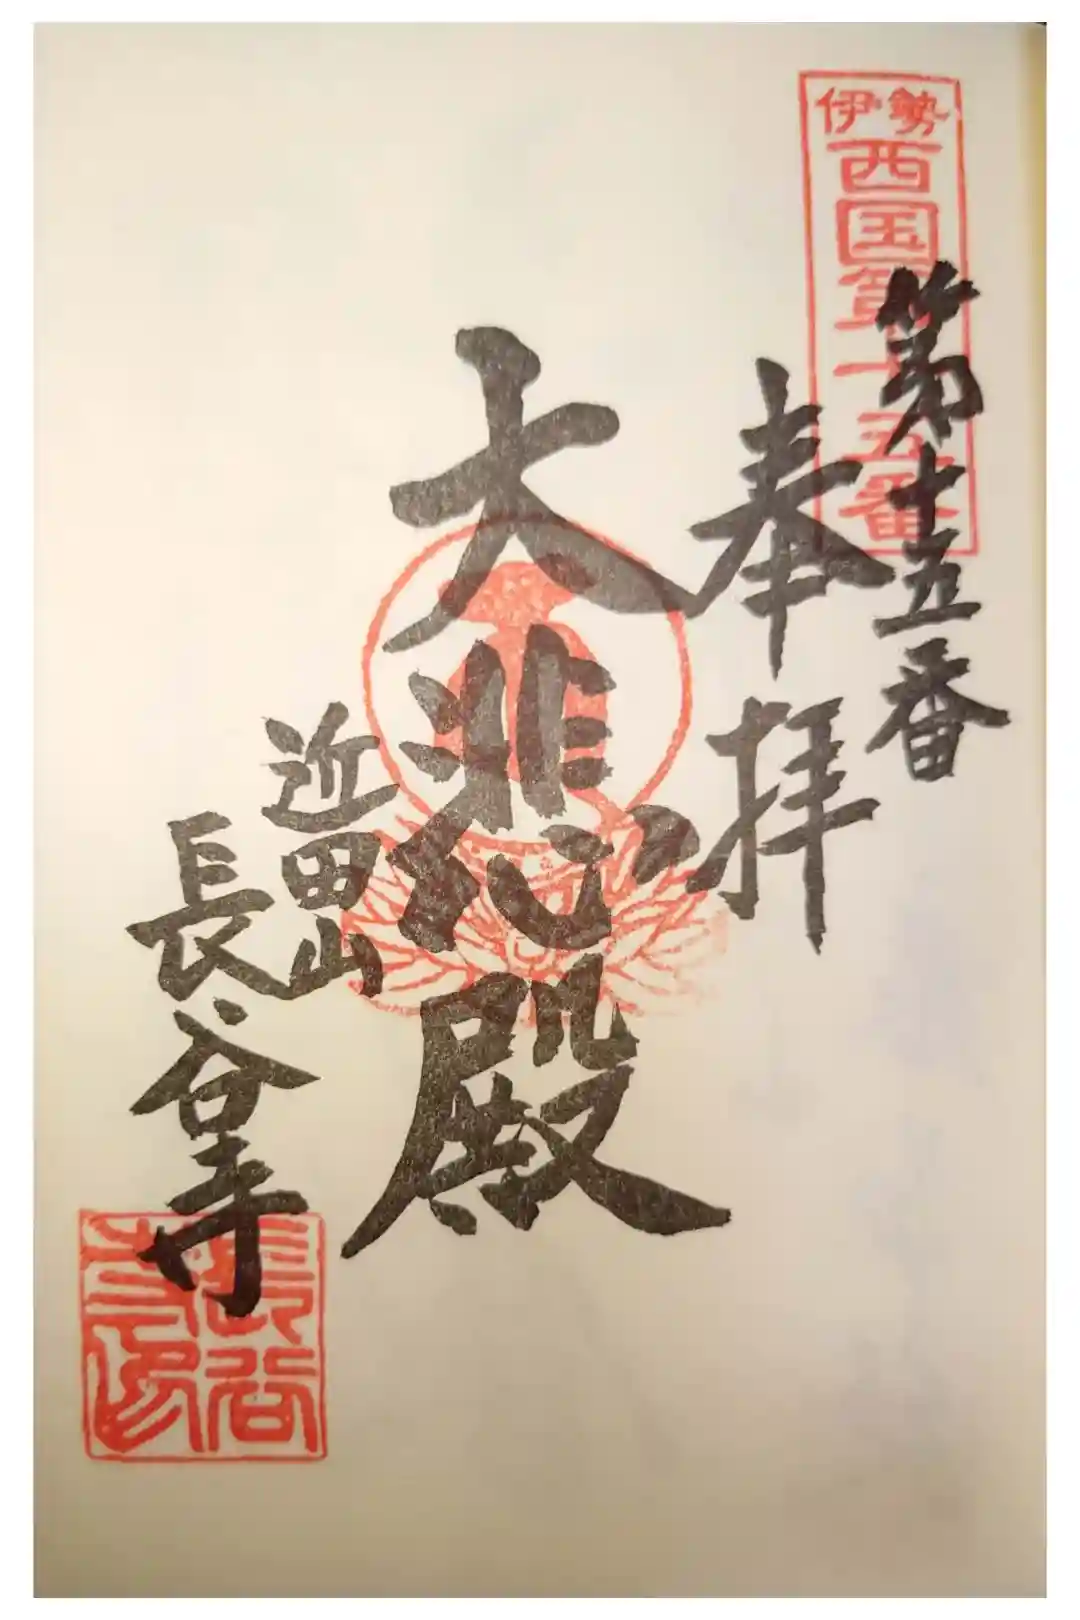 伊勢
西国第十五番
第十五番
奉拝
大悲殿
近田山
長谷寺
長谷寺印